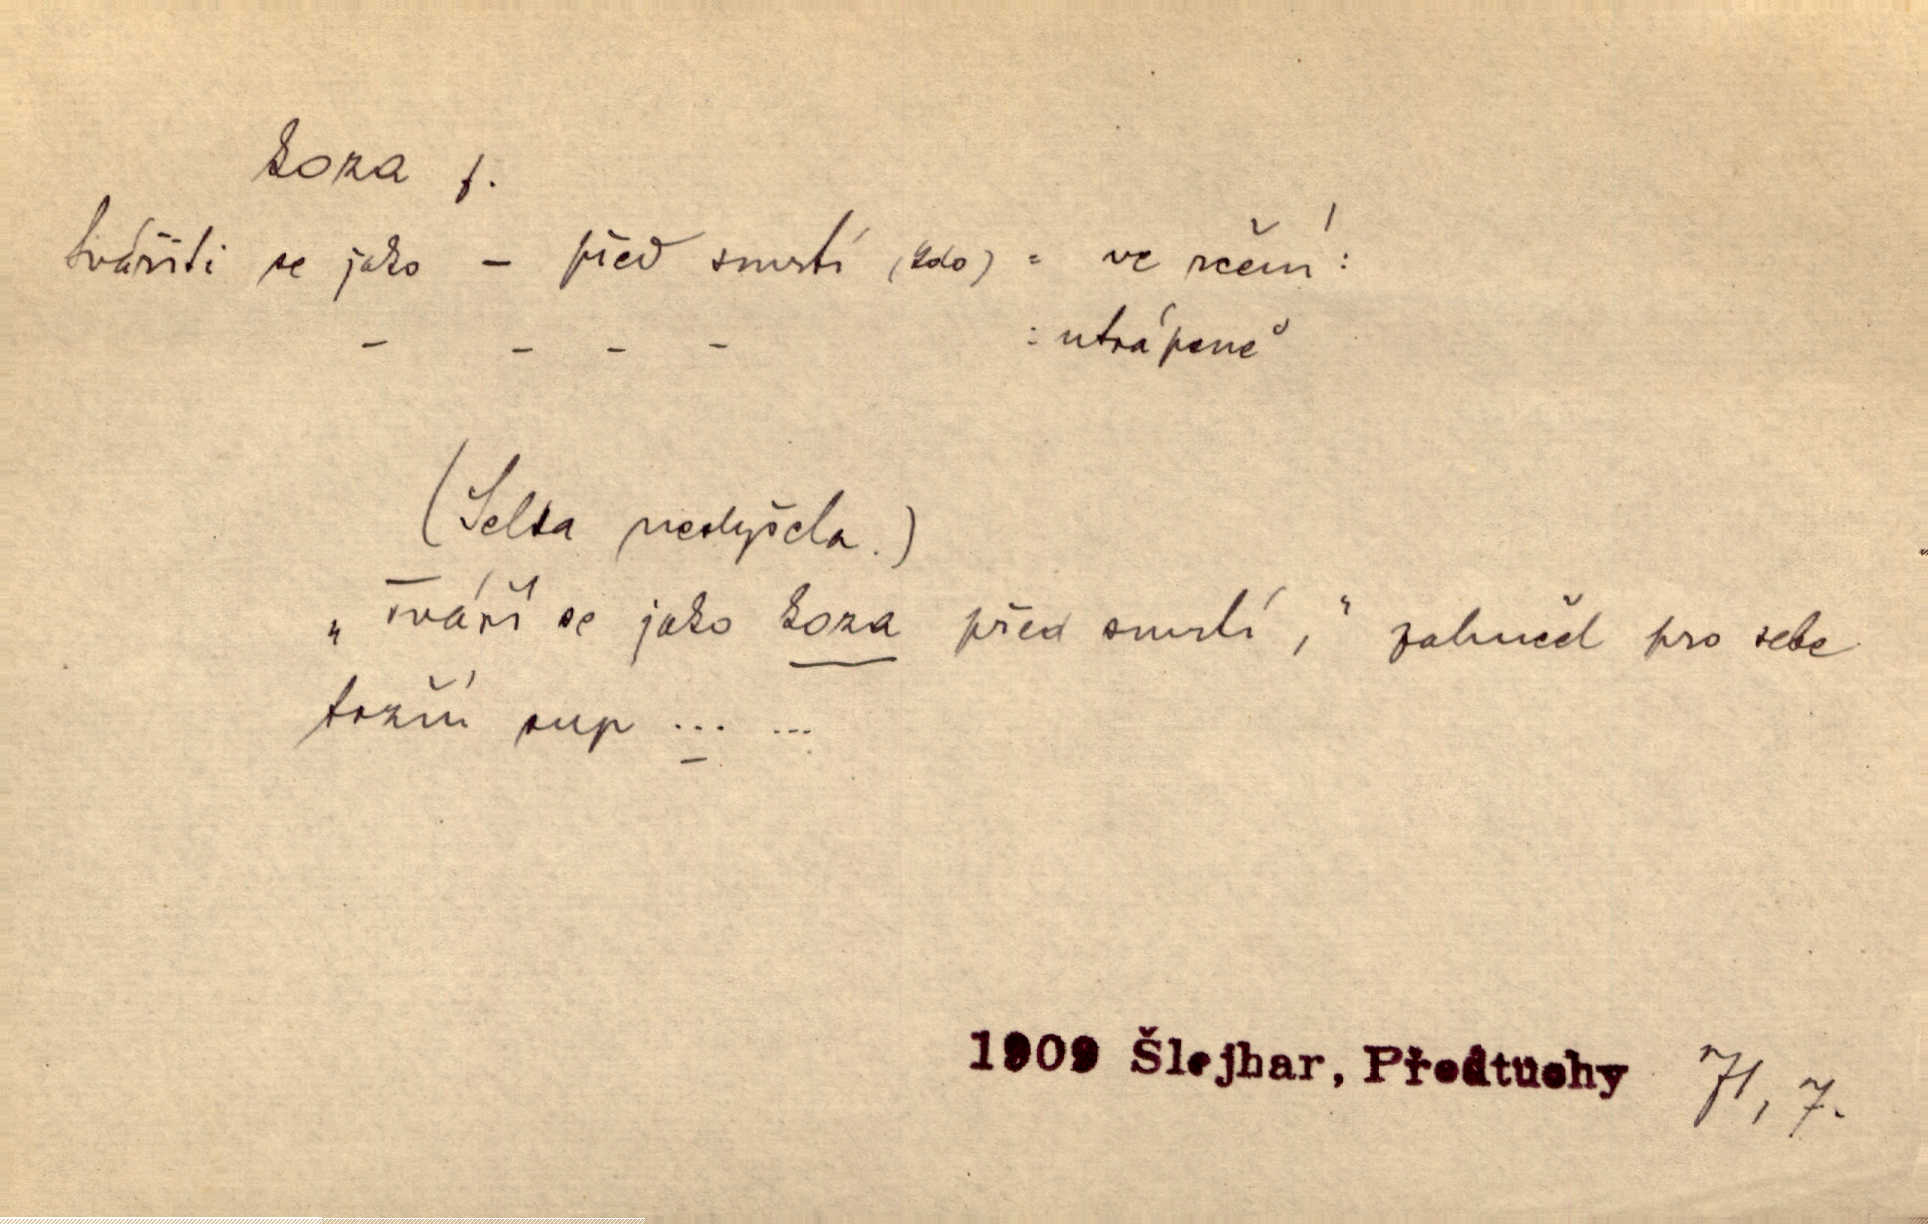 koza f.
tvářiti se jako – před smrtí (kdo) = ve rčení :
– – – – : utrápeně
(Selka neslyšela.)
„Tváří se jako koza před smrtí," zahučel pro sebe
tržní sup ... ...
1909 Šlejhar, Předtuchy 71, 7.